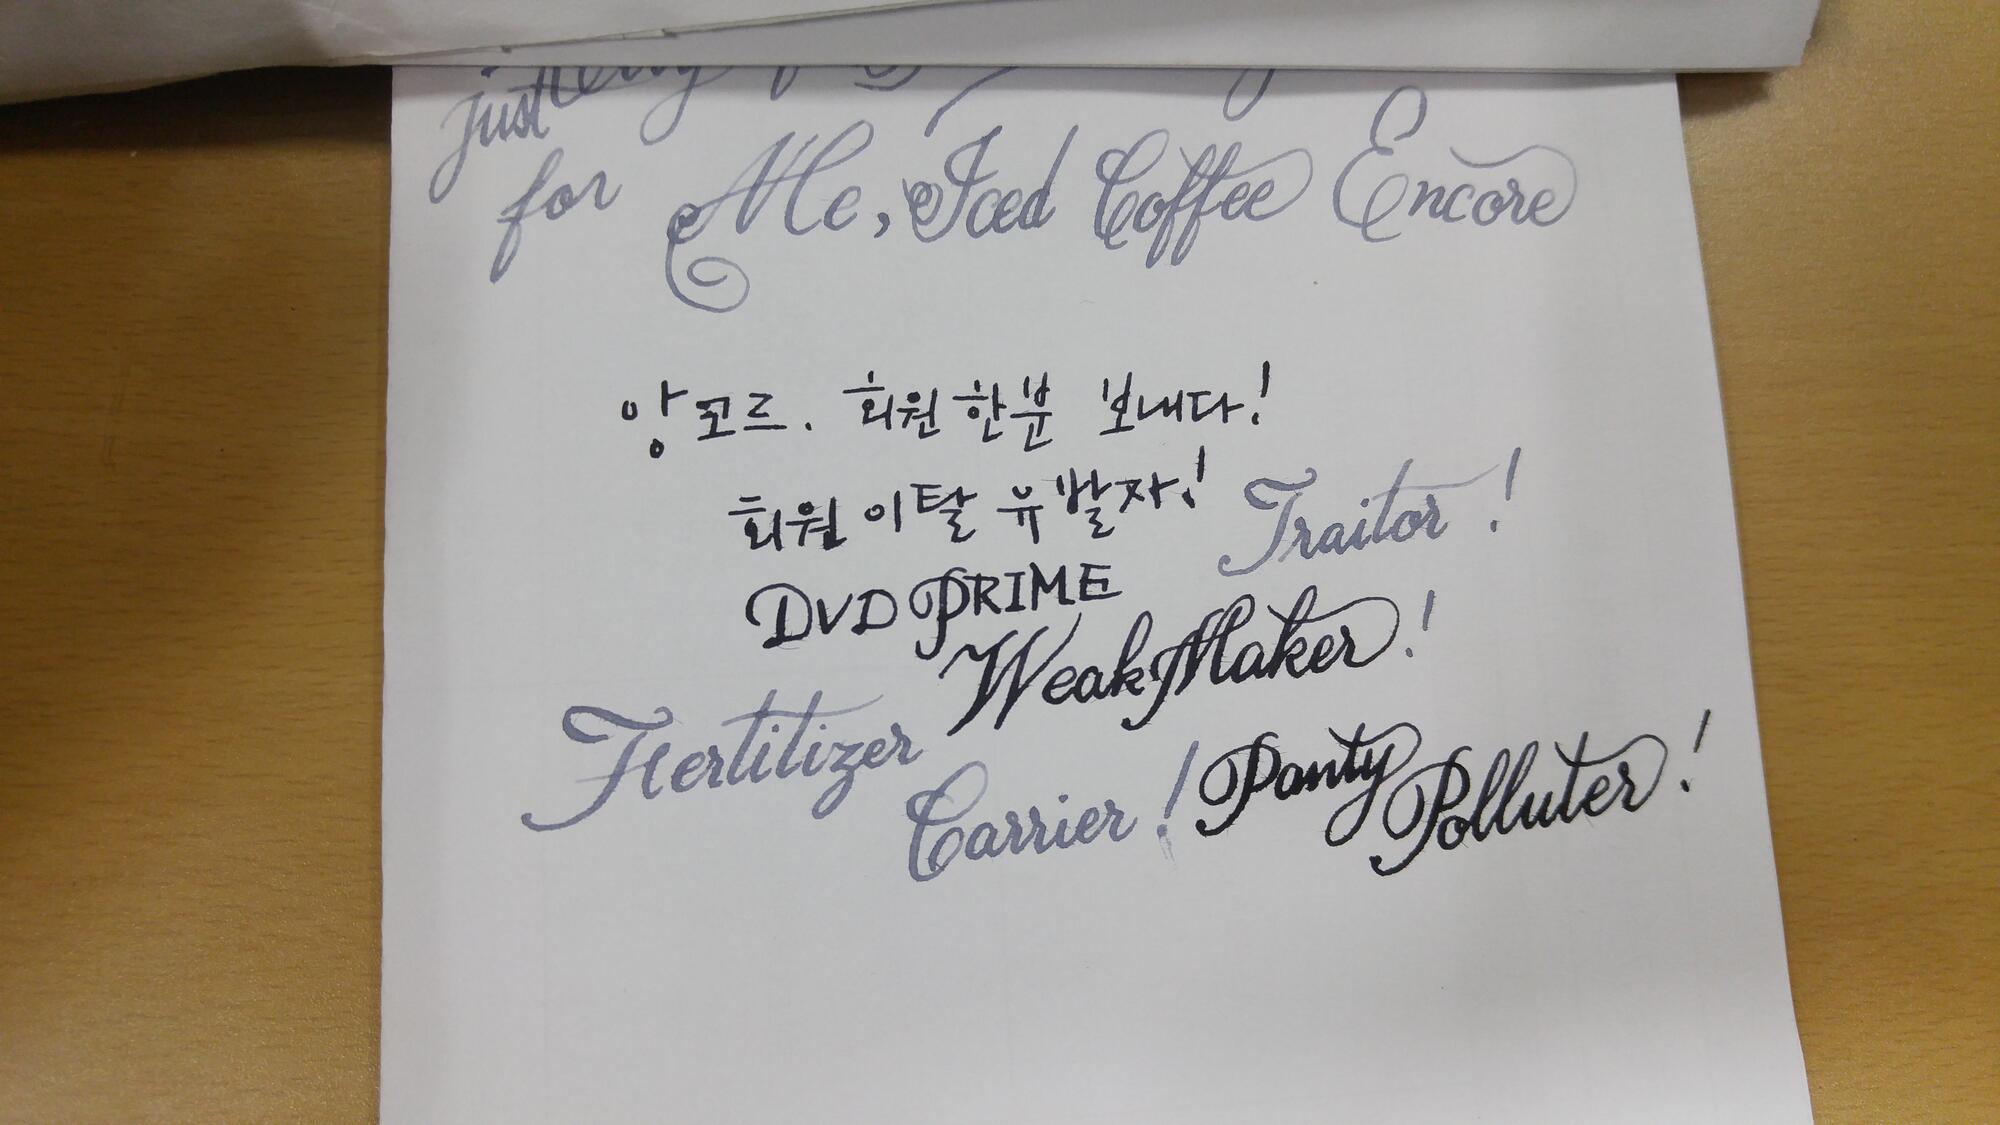 just
for Me, Iced Coffee Encore
앙코르. 회원 한분 보내다!
회원 이탈 유발자! Traitor!
DVD PRIME
Weak Maker!
Fertitizer
Carrier! Panty Polluter!